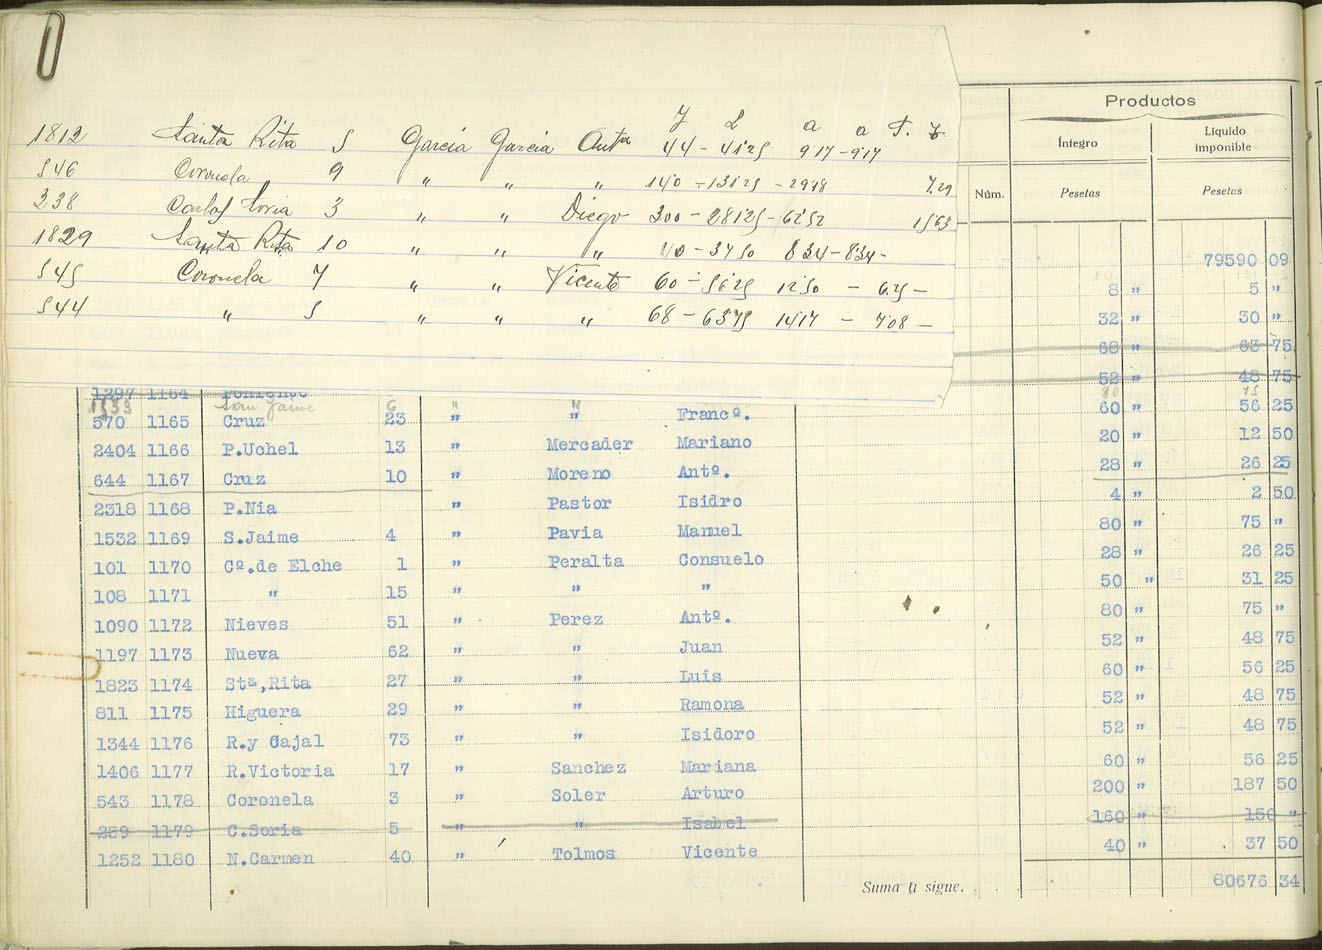 I L a a T. T.
1812 Santa Rita 5 García García Antª 44 - 41'25 9'17 - 9'17
546 Coronela 9 " " " 140 - 131'25 - 29'18 7.29
338 Carlos Soria 3 " " Diego 300 - 281'25 - 62'52 15'63
1829 Santa Rita 10 " " " 40 - 37'50 8'34 - 8'34 -
545 Coronela 7 " " Vicente 60 - 56'25 12'50 - 6.25 -
544 " 5 " " " 68 - 63'75 14'17 - 7'08 -
Productos
Íntegro Líquido imponible
Núm. Pesetas Pesetas
79590 09
8 " 5 "
32 " 30 "
68 " 63 75
52 " 48 75
1297 1164 Poniente
1533 San Jaime 6 " "
570 1165 Cruz 23 " " Francº. 60 " 56 25
2404 1166 P.Uchel 13 " Mercader Mariano 20 " 12 50
644 1167 Cruz 10 " Moreno Antº. 28 " 26 25
2318 1168 P.Nia " Pastor Isidro 4 " 2 50
1532 1169 S.Jaime 4 " Pavia Manuel 80 " 75 "
101 1170 Cº.de Elche 1 " Peralta Consuelo 28 " 26 25
108 1171 " 15 " " " 50 " 31 25
1090 1172 Nieves 51 " Perez Antº. 80 " 75 "
1197 1173 Nueva 62 " " Juan 52 " 48 75
1823 1174 Stª,Rita 27 " " Luis 60 " 56 25
811 1175 Higuera 29 " " Ramona 52 " 48 75
1344 1176 R.y Cajal 73 " " Isidoro 52 " 48 75
1406 1177 R.Victoria 17 " Sanchez Mariana 60 " 56 25
543 1178 Coronela 3 " Soler Arturo 200 " 187 50
239 1179 C.Soria 5 " " Isabel 160 " 150 "
1252 1180 N.Carmen 40 " Tolmos Vicente 40 " 37 50
Suma y sigue. . . 80676 34